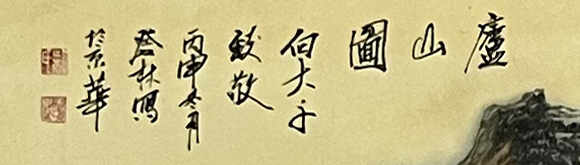 廬山圖
向大千
致敬
丙申冬月
登林寫
於京華